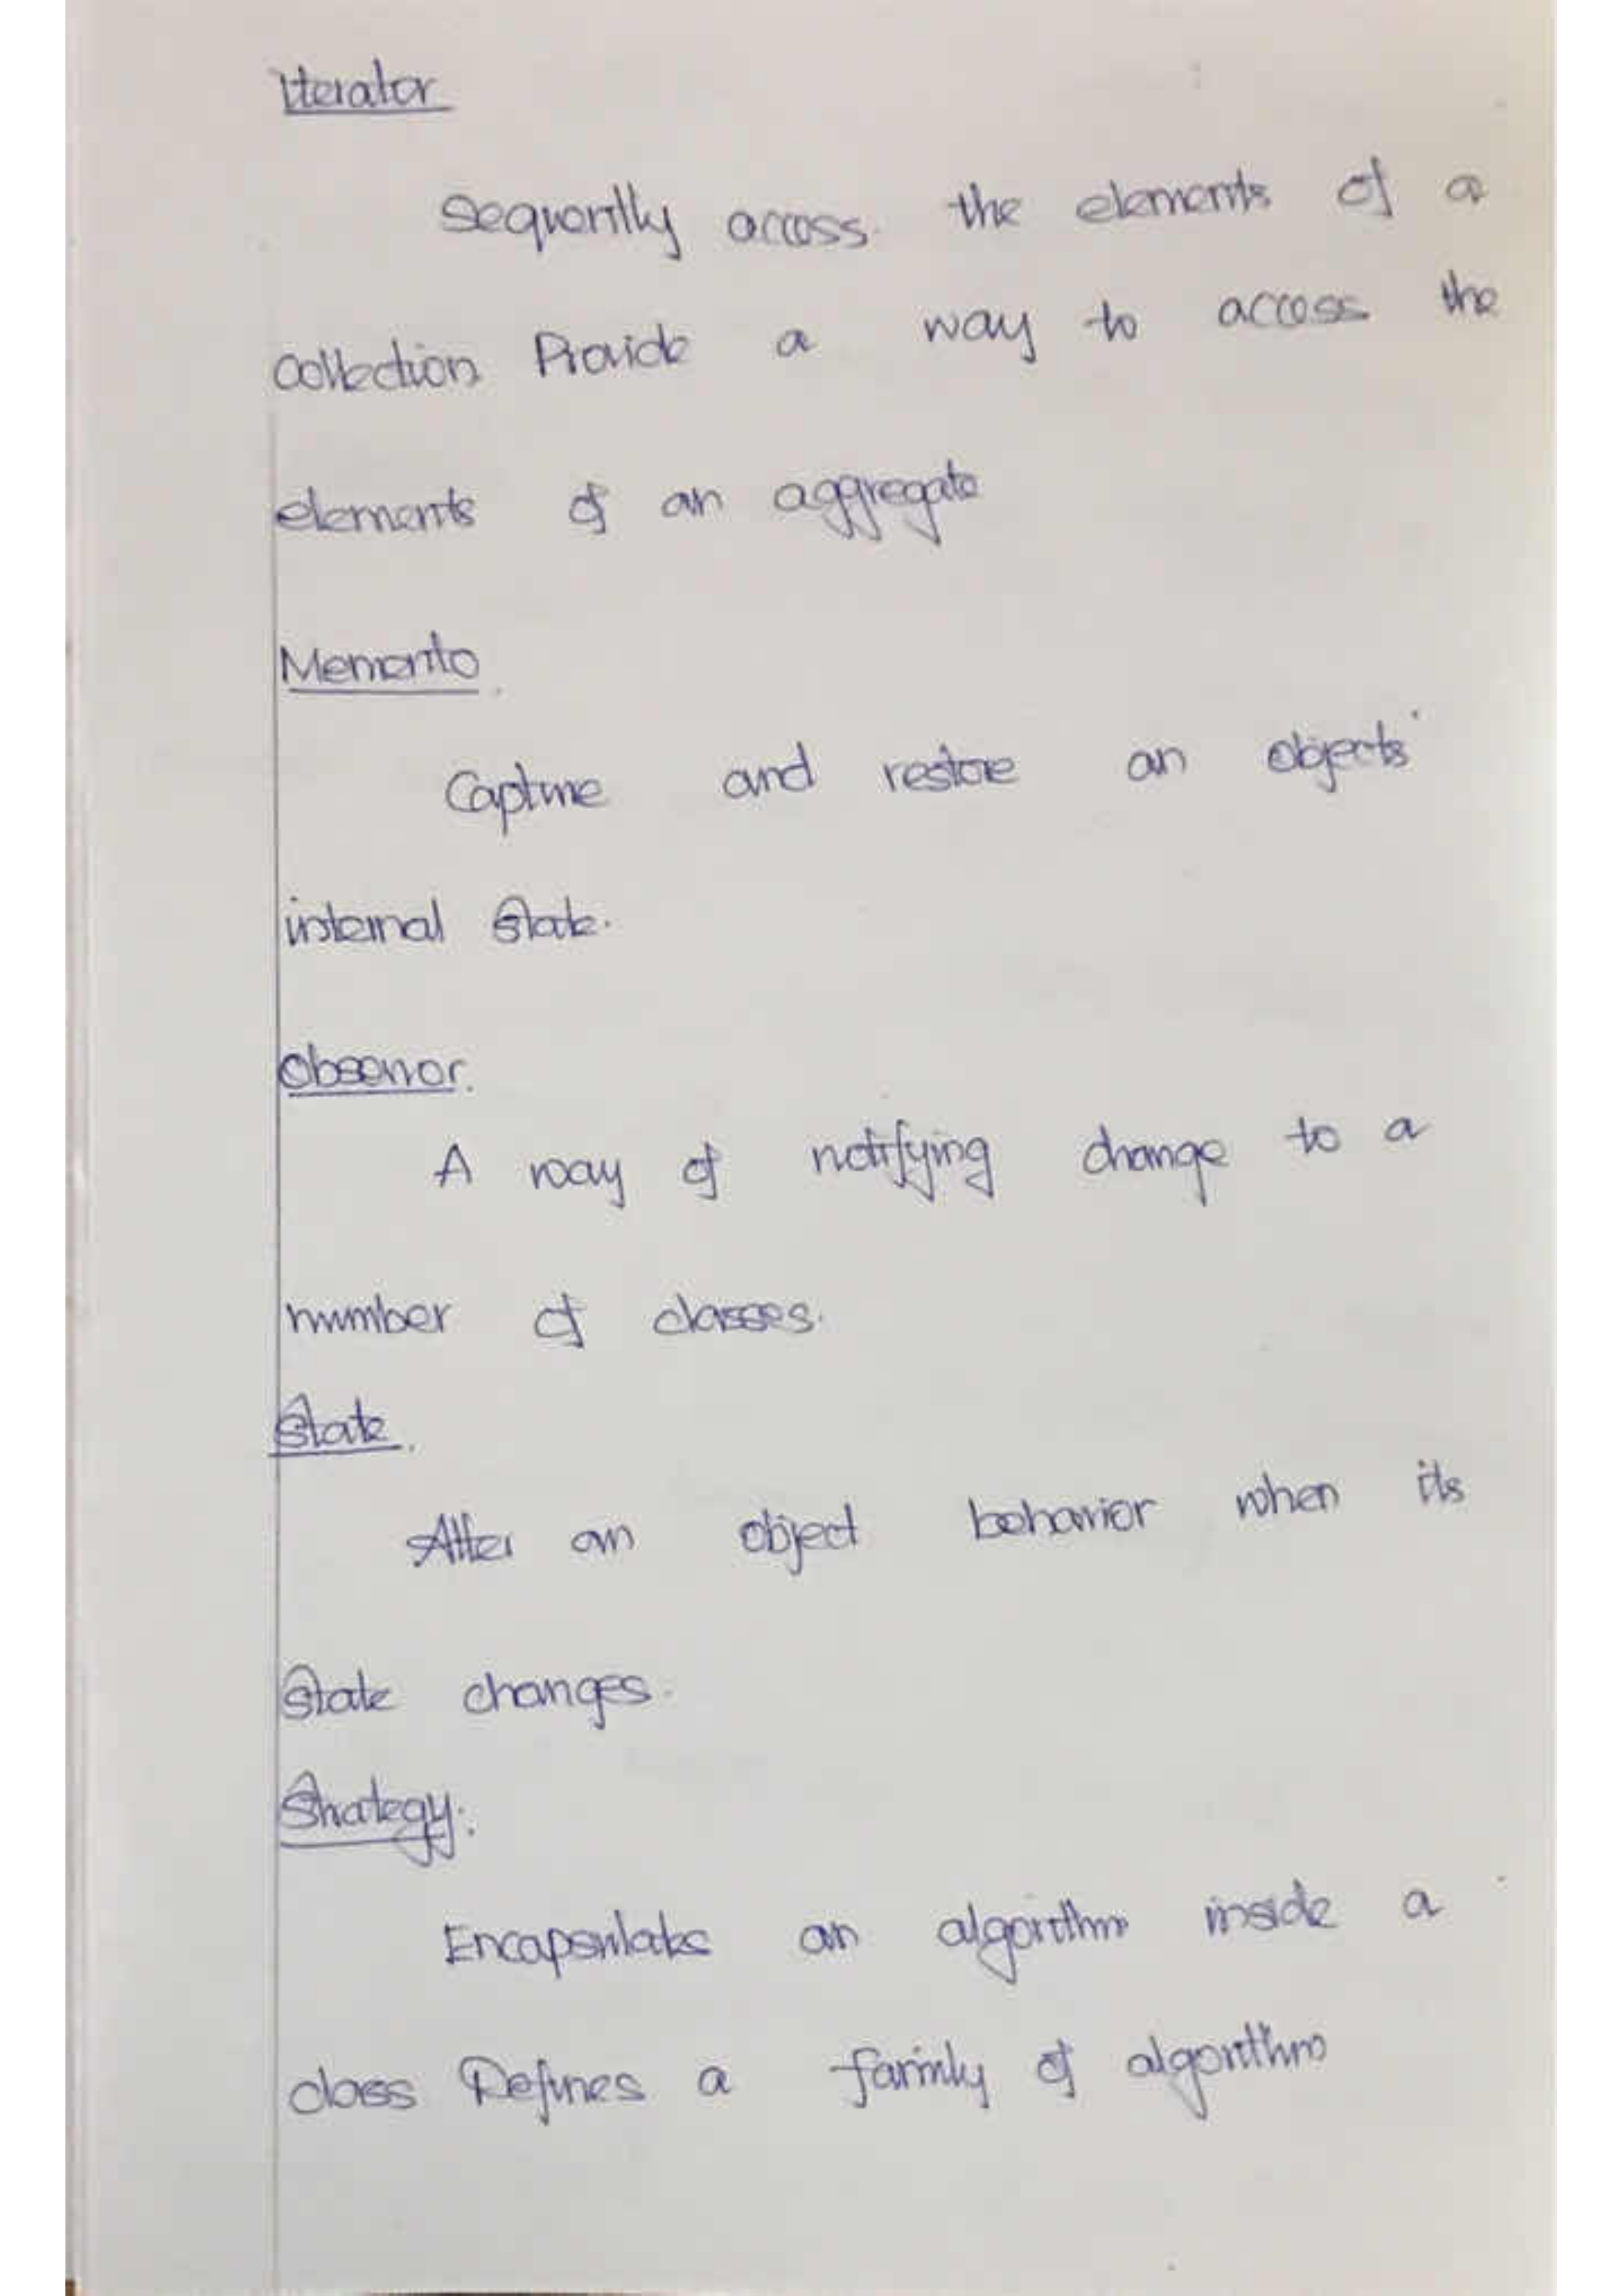 Iterator
Sequently access the elements of a
Collection Provide a way to access the
elements of an aggregate
Memento
Capture and restore an objects
internal State.
Observor.
A way of notifying change to a
number of classes.
State.
Alter an object behavior when its
State changes.
Strategy:
Encapsulates an algorithm inside a
class Defines a family of algorithm